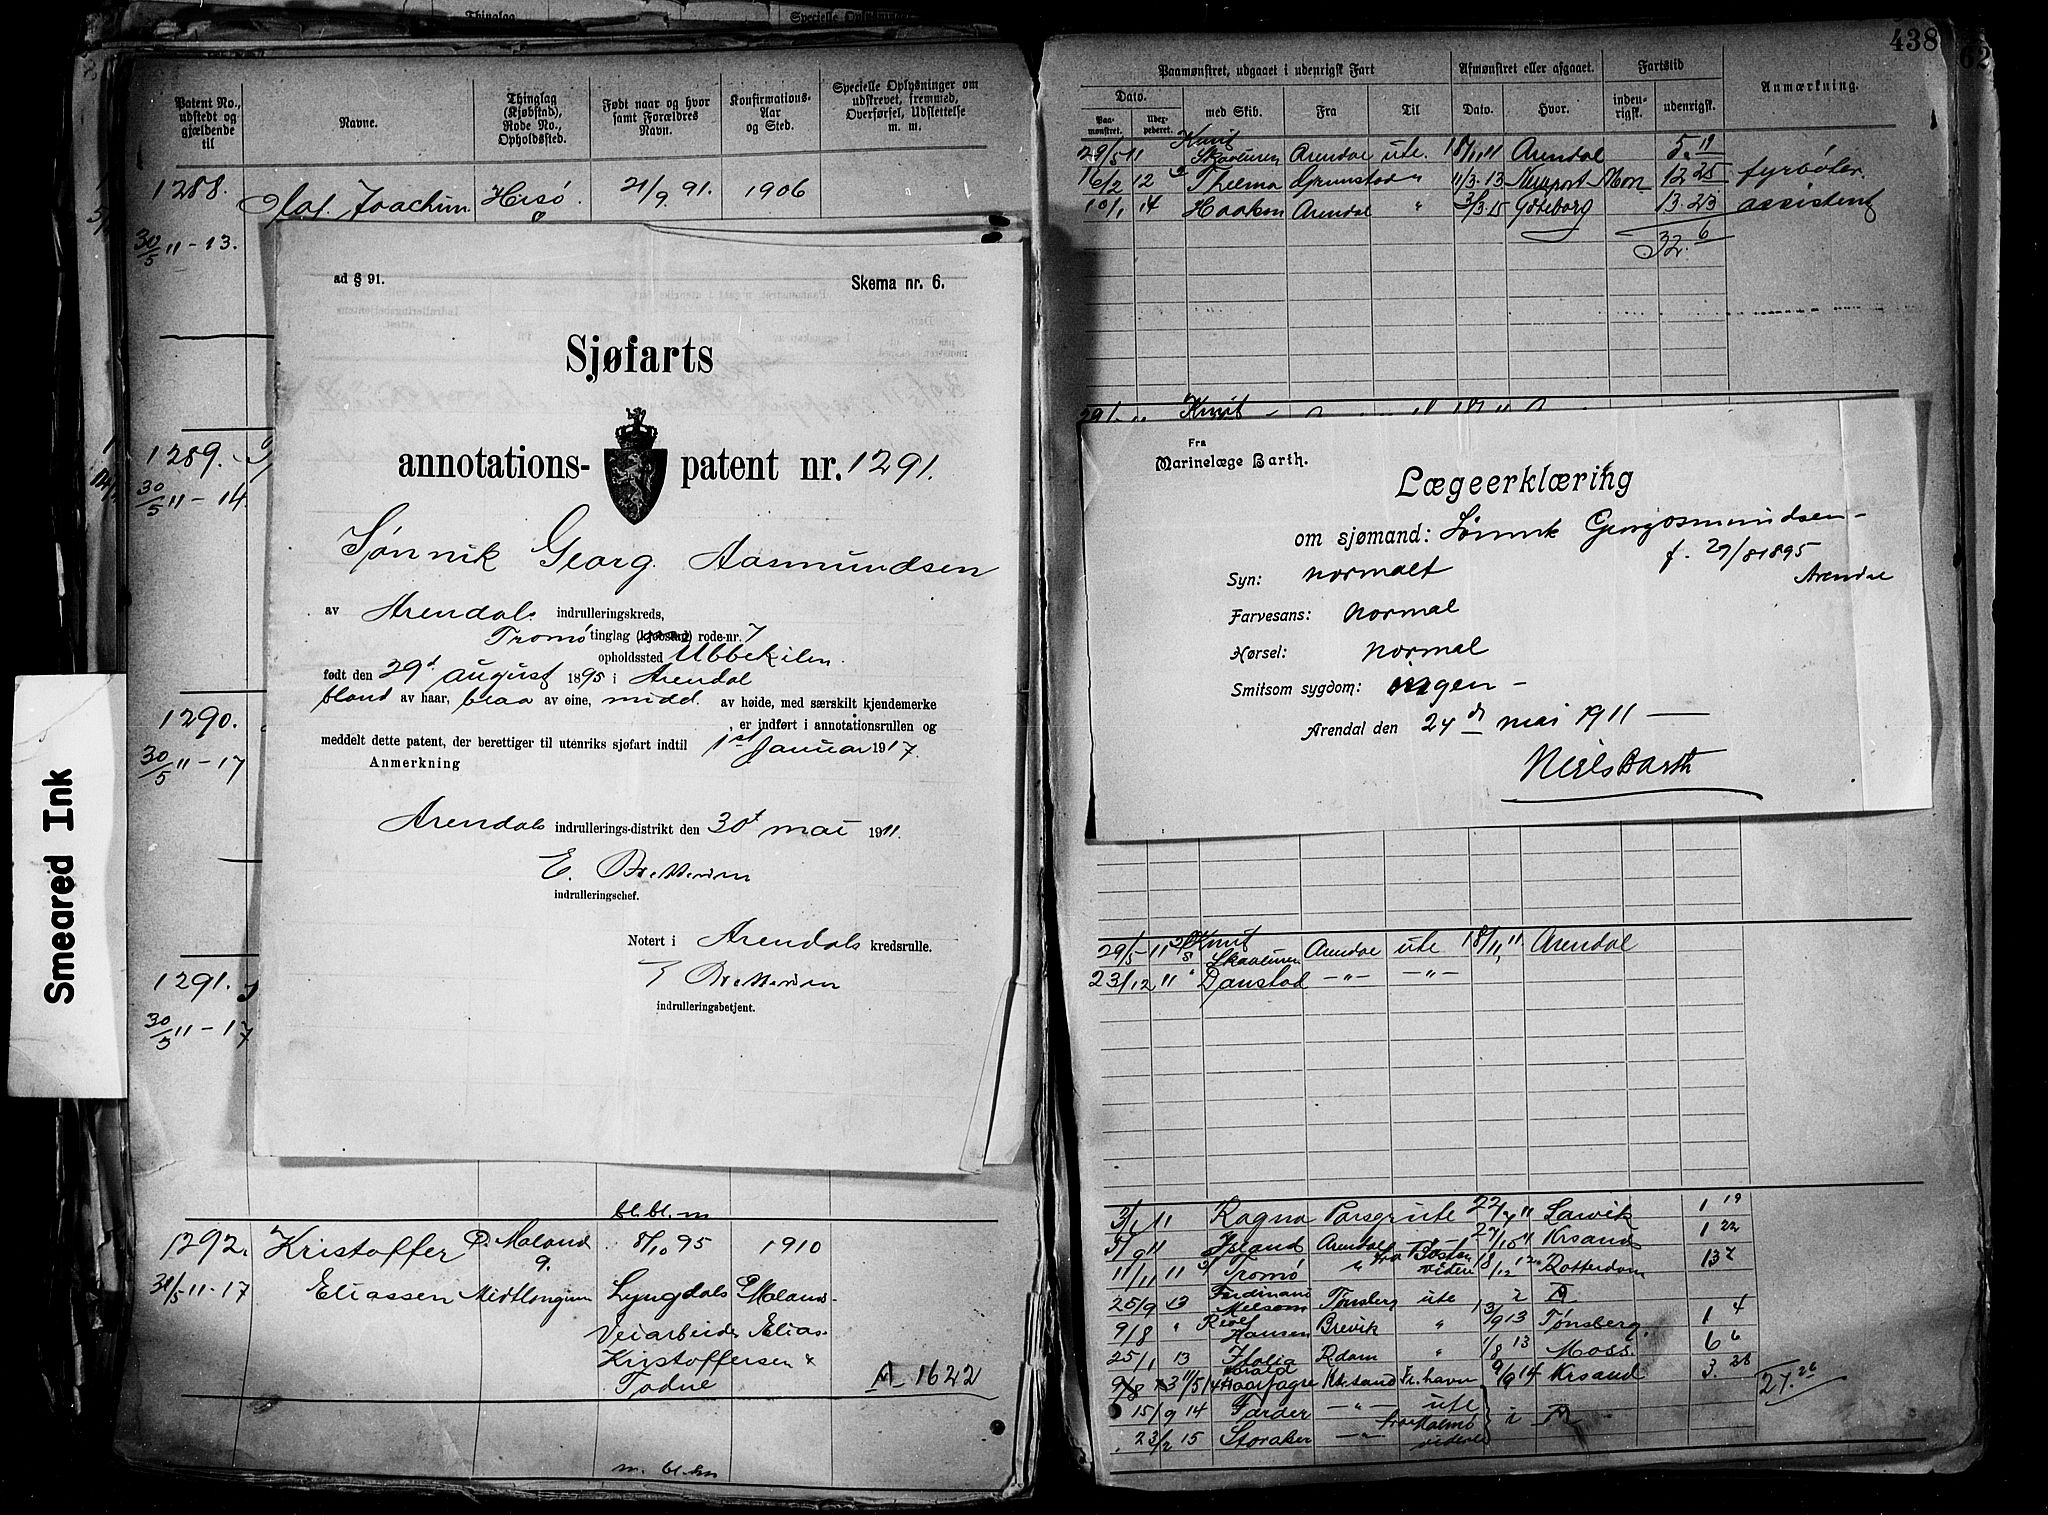 Smeared Ink
Thinglag
Specielle Oplysninger
Patent No., udstedt og gjældende til
Navne.
Thinglag (Kjøbstad), Rode No., Opholdsted.
Født naar og hvor samt Forældres Navn.
Konfirmations-Aar og Sted.
Specielle Oplysninger om udskrevet, fremmed, Overførsel, Udslettelse m. m.
1288. Olaf Joachim Hisø 21/9 91. 1906
30/5 11-13.
1289.
30/5 11-14
1290.
30/5 11-17
1291.
30/5 11-17
ad § 91.
Skema nr. 6.
Sjøfarts
annotations- patent nr. 1291.
Sønnik Georg Aasmundsen
av Arendals indrulleringskreds,
Tromø tinglag (kjøbstad) rode-nr. 7
opholdssted Ubbekilen
født den 29d august 1895 i Arendal
blond av haar, blaa av øine, midd. av høide, med særskilt kjendemerke
, er indført i annotationsrullen og
meddelt dette patent, der berettiger til utenriks sjøfart indtil 1st Januar 1917.
Anmerkning
Arendals indrullerings-distrikt den 30t mai 1911.
indrulleringschef.
Notert i Arendals kredsrulle.
indrulleringsbetjent.
bl. bl. m
1292. Kristoffer Ø. Moland 8/10 95 1910
9.
31/5 11-17 Eliassen Midtlongum Lyngdals Ø Moland
Veiarbeider Elias
Kristoffersen &
Todne
A 1622
m. bl. bn
438
62
Paamønstret, udgaaet i udenrigsk Fart
Afmønstret eller afgaaet.
Fartstid
Anmærkning.
Dato.
Paamønstret.
Udexpederet.
med Skib.
Fra
Til
Dato.
Hvor.
indenrigsk.
udenrigsk.
29/5 11 Knut Skaaluren Arendal ute. 18/11 11 Arendal 5. 11
16/2 12 Thelma Grimstad " 11/3. 13 Newport Mon 12 25 fyrbøter
10/1 14 Haakon Arendal " 3/3. 15 Gøteborg 13. 23 assistent
32. 6
29/ Knut
Fra
Marinelæge Barth.
Lægeerklæring
om sjømand: Sønnik Georg Osmundsen
f. 29/8 1895
Arendal
Syn: normalt
Farvesans: normal
Hørsel: normal
Smitsom sygdom: ingen -
Arendal den 24de mai 1911
Niels Barth
29/5-11 Knut Skaaluren Arendal ute 18/11 11 Arendal
23/12 11 Danstad -"- -"-
3/1 11 Ragna Porsgr ute 22/4 11 Larvik 1 19
5/9 11 Island Arendal " 27/10 11 Krsand 1 22
11/11 11 Tromø " fra Boston videre 18/12 12 Rotterdam 13 2
25/9 13 Ferdinand Melsom Tønsberg ute
9/8 " Rolf Hansen Brevik " 13/9 13 Tønsberg. 1 4
25/1 13 Italia Rdam " 1/8 13 Moss 6 6
9/8 13 11/5 14 Harald Haarfagre Krsand Fr.havn 9/6 14 Krsand 3. 28
27. 26
15/9 14 Færder -"- ute
23/2 15 Storaker -"- fra Malmø videre